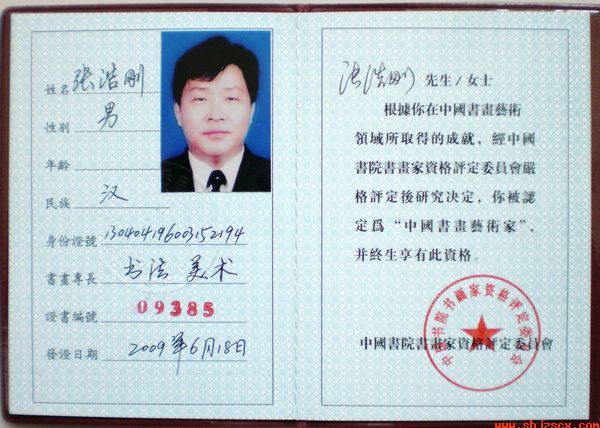 姓名 张浩刚
性别 男
年龄
民族 汉
身份證號 130404196003152194
書畫專長 书法 美术
證書編號 09385
發證日期 2009年6月18日
张浩刚 先生/女士
根據你在中國書畫藝術
領域所取得的成就，經中國
書院書畫家資格評定委員會嚴
格評定後研究決定，你被認
定爲“中國書畫藝術家”，
并終生享有此資格。
中国书院书画家资格评定委员会
中國書院書畫家資格評定委員會
www.shjzscx.com